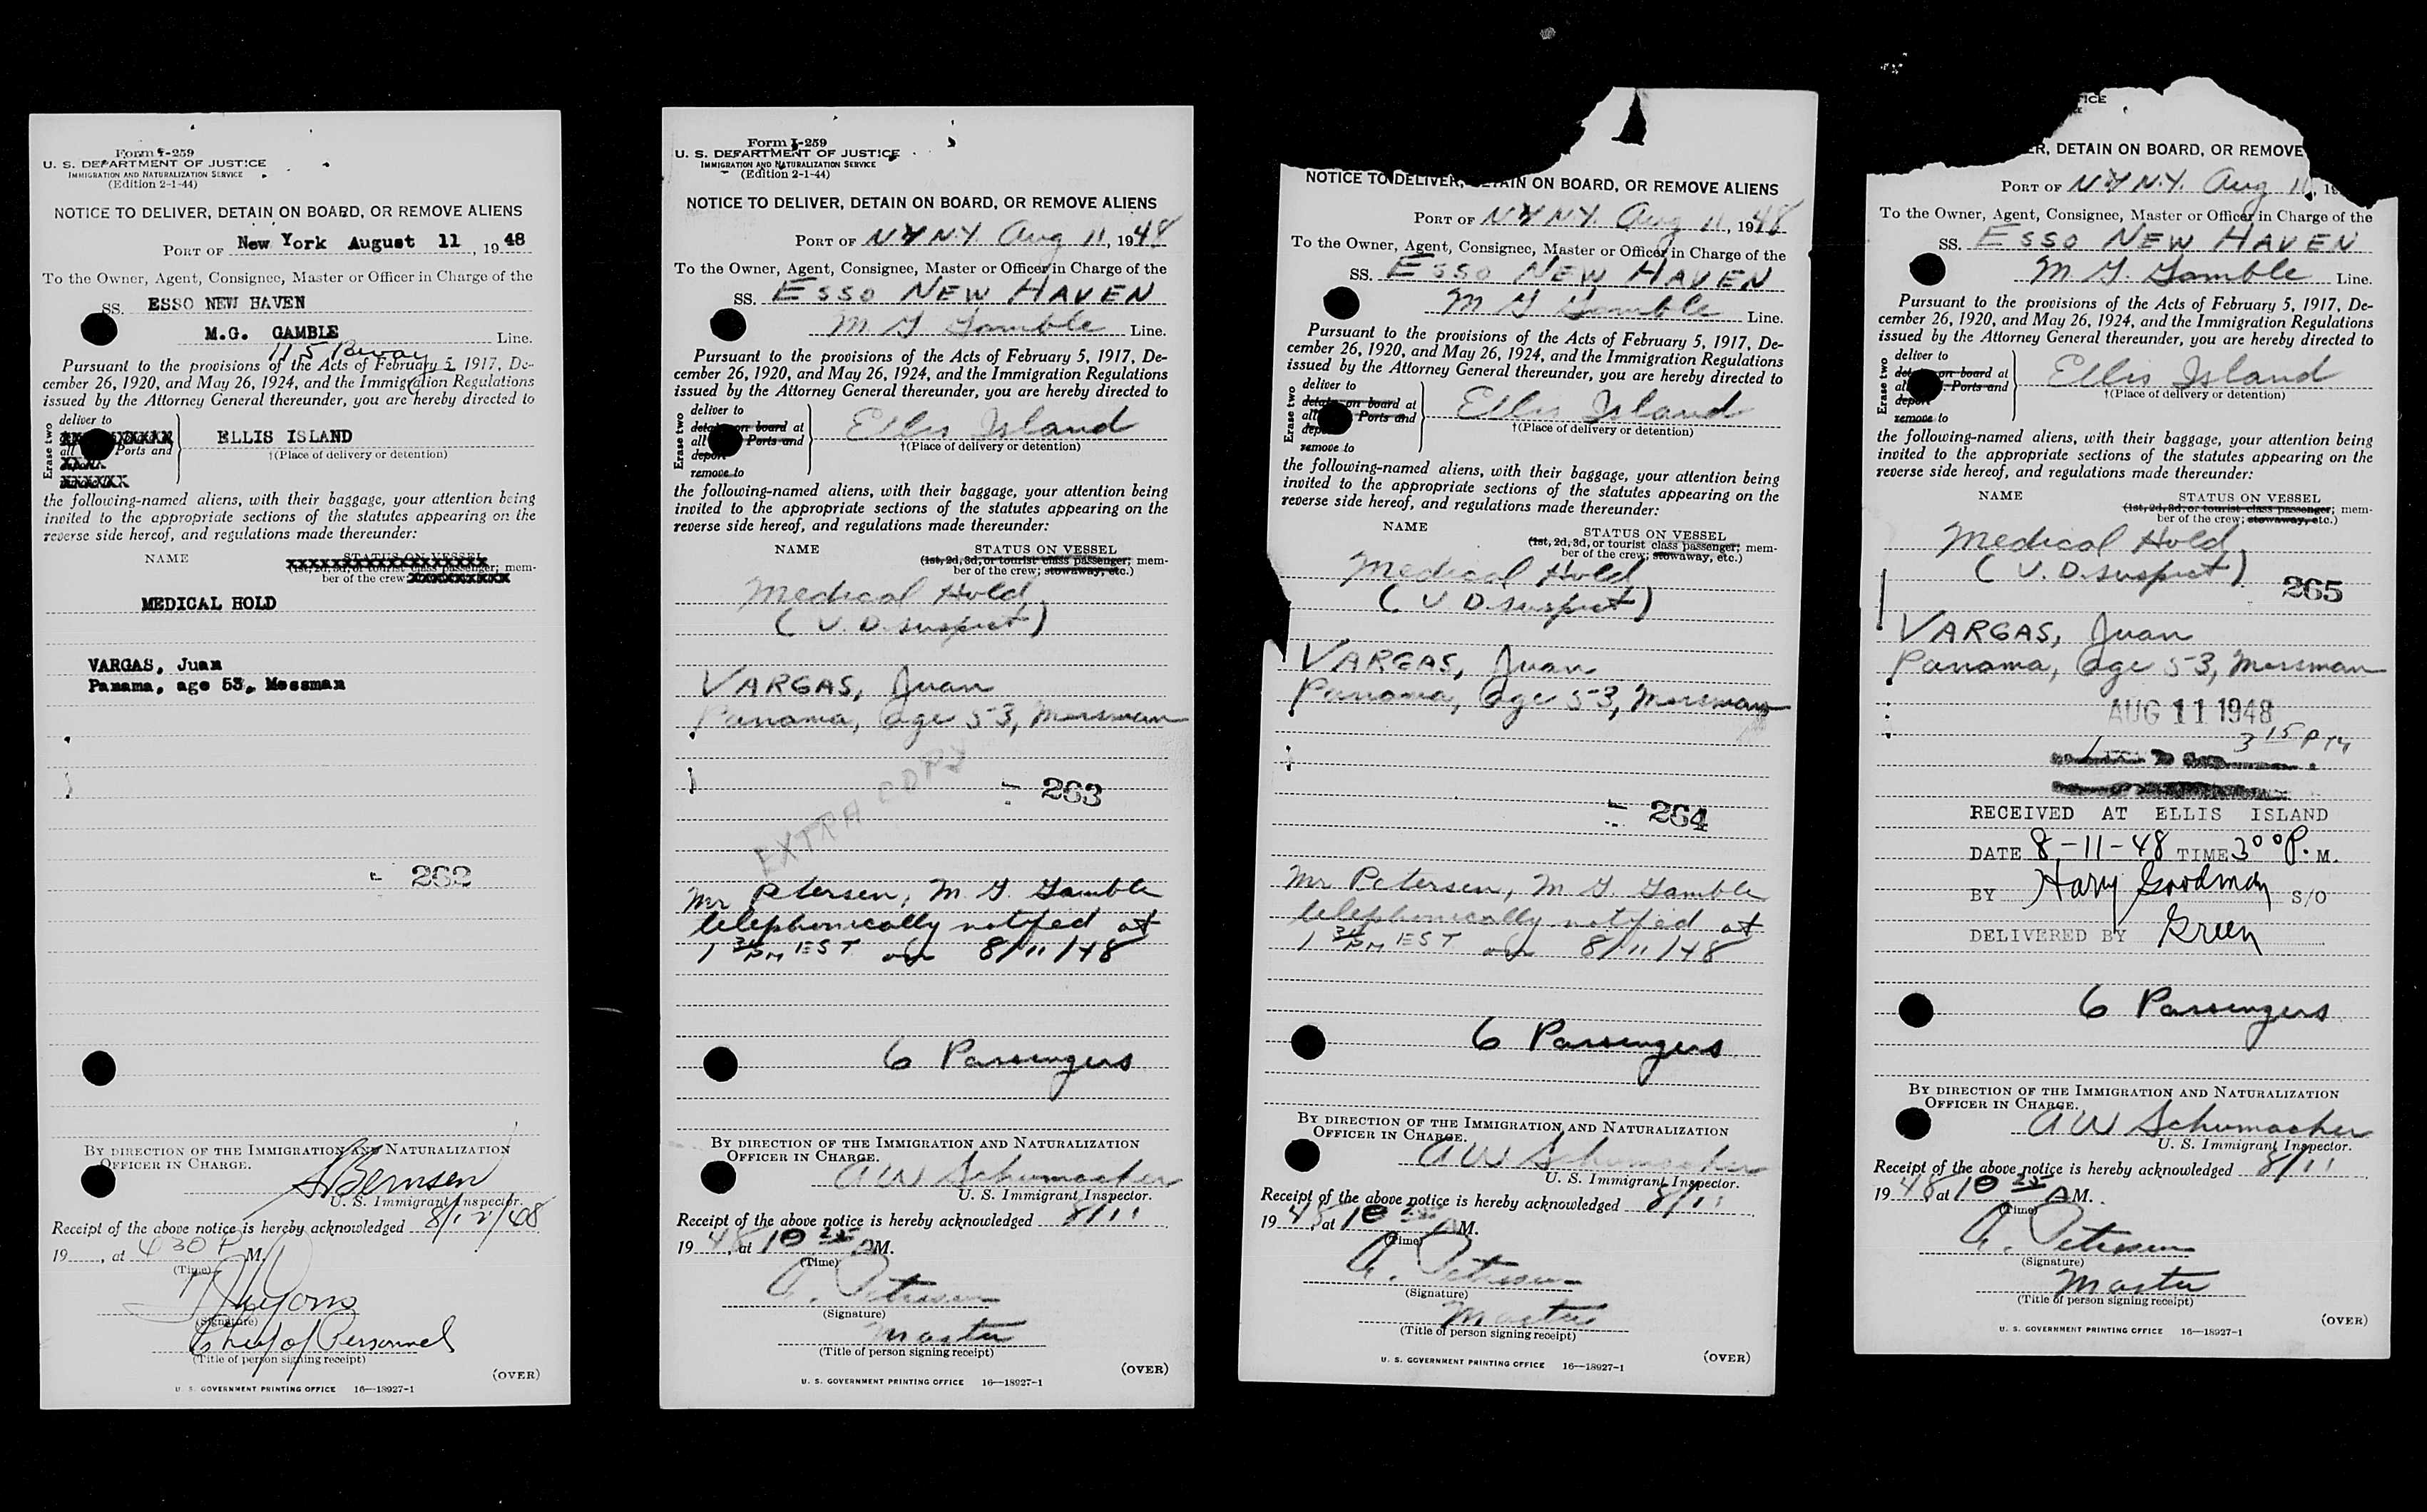 Form I-259
U. S. DEPARTMENT OF JUSTICE
IMMIGRATION AND NATURALIZATION SERVICE
(Edition 2-1-44)
NOTICE TO DELIVER, DETAIN ON BOARD, OR REMOVE ALIENS
PORT OF New York August 11, 1948
To the Owner, Agent, Consignee, Master or Officer in Charge of the
SS. ESSO NEW HAVEN
M.G. GAMBLE Line.
115 Bway
Pursuant to the provisions of the Acts of February 5, 1917, De-
cember 26, 1920, and May 26, 1924, and the Immigration Regulations
issued by the Attorney General thereunder, you are hereby directed to
Erase two
deliver to
all Ports and
ELLIS ISLAND
†(Place of delivery or detention)
the following-named aliens, with their baggage, your attention being
invited to the appropriate sections of the statutes appearing on the
reverse side hereof, and regulations made thereunder:
NAME STATUS ON VESSEL
(1st, 2d, 3d, or tourist class passenger; mem-
ber of the crew;
MEDICAL HOLD
VARGAS, Juan
Panama, age 53, Messman
262
BY DIRECTION OF THE IMMIGRATION AND NATURALIZATION
OFFICER IN CHARGE.
Bernsen
U. S. Immigrant Inspector.
Receipt of the above notice is hereby acknowledged 8/12/48
19, at 430 P M.
(Time)
(Signature)
Chief of Personnel
(Title of person signing receipt)
(OVER)
U. S. GOVERNMENT PRINTING OFFICE 16—18927-1
Form I-259
U. S. DEPARTMENT OF JUSTICE
IMMIGRATION AND NATURALIZATION SERVICE
(Edition 2-1-44)
NOTICE TO DELIVER, DETAIN ON BOARD, OR REMOVE ALIENS
PORT OF NY N.Y. Aug 11, 1948
To the Owner, Agent, Consignee, Master or Officer in Charge of the
SS. ESSO NEW HAVEN
M G Gamble Line.
Pursuant to the provisions of the Acts of February 5, 1917, De-
cember 26, 1920, and May 26, 1924, and the Immigration Regulations
issued by the Attorney General thereunder, you are hereby directed to
Erase two
deliver to
detain on board at
all Ports and
deport
remove to
Ellis Island
†(Place of delivery or detention)
the following-named aliens, with their baggage, your attention being
invited to the appropriate sections of the statutes appearing on the
reverse side hereof, and regulations made thereunder:
NAME STATUS ON VESSEL
(1st, 2d, 3d, or tourist class passenger; mem-
ber of the crew; stowaway, etc.)
Medical Hold
(V. D. suspect)
VARGAS, Juan
Panama, age 53, Messman
EXTRA COPY
263
Mr Petersen, M. G. Gamble
telephonically notified at
1 30 PM EST on 8/11/48
6 Passengers
BY DIRECTION OF THE IMMIGRATION AND NATURALIZATION
OFFICER IN CHARGE.
A W Schumacher
U. S. Immigrant Inspector.
Receipt of the above notice is hereby acknowledged 8/11
1948, at 10 25 AM.
(Time)
A. Petersen
(Signature)
Master
(Title of person signing receipt)
(OVER)
U. S. GOVERNMENT PRINTING OFFICE 16—18927-1
NOTICE TO DELIVER, DETAIN ON BOARD, OR REMOVE ALIENS
PORT OF NY N.Y. Aug 11, 1948
To the Owner, Agent, Consignee, Master or Officer in Charge of the
SS. ESSO NEW HAVEN
M G Gamble Line.
Pursuant to the provisions of the Acts of February 5, 1917, De-
cember 26, 1920, and May 26, 1924, and the Immigration Regulations
issued by the Attorney General thereunder, you are hereby directed to
Erase two
deliver to
detain on board at
all Ports and
deport
remove to
Ellis Island
†(Place of delivery or detention)
the following-named aliens, with their baggage, your attention being
invited to the appropriate sections of the statutes appearing on the
reverse side hereof, and regulations made thereunder:
NAME STATUS ON VESSEL
(1st, 2d, 3d, or tourist class passenger; mem-
ber of the crew; stowaway, etc.)
Medical Hold
(V D. suspect)
VARGAS, Juan
Panama, age 53, Messman
264
Mr Petersen, M. G. Gamble
telephonically notified at
1 30 PM EST on 8/11/48
6 Passengers
BY DIRECTION OF THE IMMIGRATION AND NATURALIZATION
OFFICER IN CHARGE.
A W Schumacher
U. S. Immigrant Inspector.
Receipt of the above notice is hereby acknowledged 8/11
1948, at 10 25 AM.
(Time)
A. Petersen
(Signature)
Master
(Title of person signing receipt)
(OVER)
U. S. GOVERNMENT PRINTING OFFICE 16—18927-1
ER, DETAIN ON BOARD, OR REMOVE
PORT OF NY N.Y. Aug 11, 19
To the Owner, Agent, Consignee, Master or Officer in Charge of the
SS. ESSO NEW HAVEN
M. G. Gamble Line.
Pursuant to the provisions of the Acts of February 5, 1917, De-
cember 26, 1920, and May 26, 1924, and the Immigration Regulations
issued by the Attorney General thereunder, you are hereby directed to
Erase two
deliver to
detain on board at
all Ports and
deport
remove to
Ellis Island
†(Place of delivery or detention)
the following-named aliens, with their baggage, your attention being
invited to the appropriate sections of the statutes appearing on the
reverse side hereof, and regulations made thereunder:
NAME STATUS ON VESSEL
(1st, 2d, 3d, or tourist class passenger; mem-
ber of the crew; stowaway, etc.)
Medical Hold
(V. D. suspect)
265
VARGAS, Juan
Panama, age 53, Messman
AUG 11 1948
3 15 PM
RECEIVED AT ELLIS ISLAND
DATE 8-11-48 TIME 3 00 P. M.
BY Harry Goodman S/O
DELIVERED BY Green
6 Passengers
BY DIRECTION OF THE IMMIGRATION AND NATURALIZATION
OFFICER IN CHARGE.
A W Schumacher
U. S. Immigrant Inspector.
Receipt of the above notice is hereby acknowledged 8/11
1948 at 10 25 AM.
(Time)
A. Petersen
(Signature)
Master
(Title of person signing receipt)
(OVER)
U. S. GOVERNMENT PRINTING OFFICE 16—18927-1